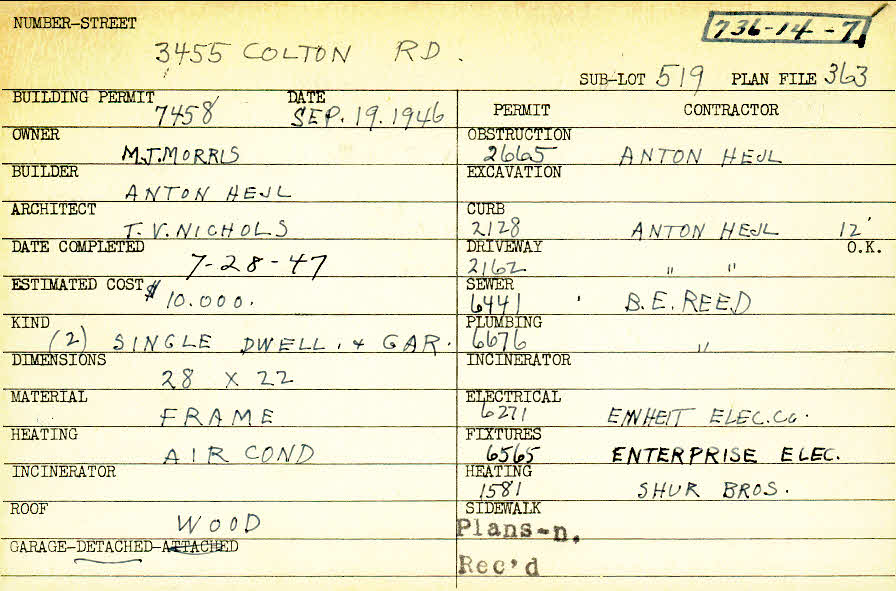 NUMBER-STREET
736-14-7
3455 COLTON RD.
SUB-LOT 519 PLAN FILE 363
BUILDING PERMIT DATE
7458 SEP. 19. 1946
PERMIT CONTRACTOR
OWNER
M.J. MORRIS
OBSTRUCTION
2665 ANTON HEJL
BUILDER
ANTON HEJL
EXCAVATION
ARCHITECT
T. V. NICHOLS
CURB
2128 ANTON HEJL 12'
DATE COMPLETED
7-28-47
DRIVEWAY O.K.
2162 " "
ESTIMATED COST $ 10.000.
SEWER
6441 B.E. REED
KIND
(2) SINGLE DWELL. + GAR.
PLUMBING
6676 "
DIMENSIONS
28 X 22
INCINERATOR
MATERIAL
FRAME
ELECTRICAL
6271 ELEC. CO.
HEATING
AIR COND
FIXTURES
6565 ENTERPRISE ELEC.
INCINERATOR
HEATING
1581 SHUR BROS.
ROOF
WOOD
SIDEWALK
Plans-n.
GARAGE-DETACHED-ATTACHED
Rec'd